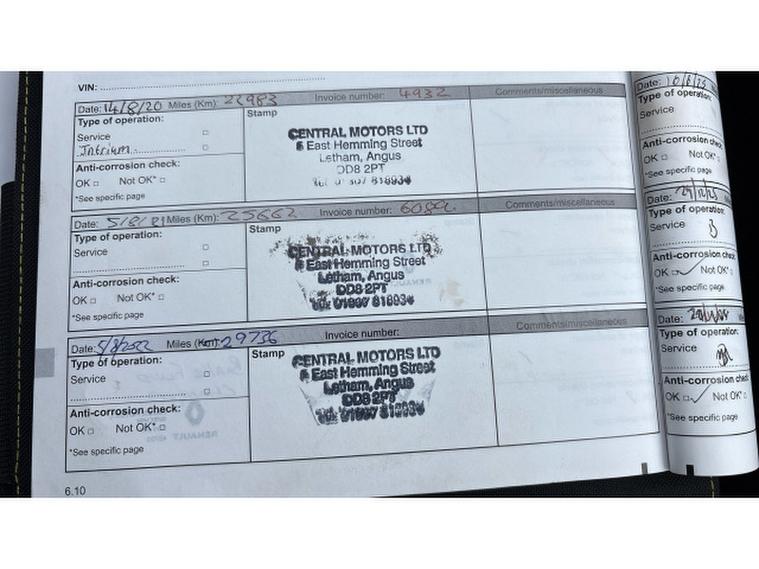 VIN:
Date: 14/8/20 Miles (Km): 22983 Invoice number: 4932 Comments/miscellaneous
Type of operation:
Stamp
Service
Interium
Anti-corrosion check:
OK Not OK*
*See specific page
CENTRAL MOTORS LTD
6 East Hemming Street
Letham, Angus
DD8 2PT
Date: 5/8/21 Miles (Km): 25662 Invoice number: Comments/miscellaneous
Type of operation:
Stamp
Service
Anti-corrosion check:
OK Not OK*
*See specific page
CENTRAL MOTORS LTD
6 East Hemming Street
Letham, Angus
DD8 2PT
Tel: 01307 818934
Date: 5/8/2022 Miles (Km): 29736 Invoice number: Comments/miscellaneous
Type of operation:
Stamp
Service
Anti-corrosion check:
OK Not OK*
*See specific page
CENTRAL MOTORS LTD
6 East Hemming Street
Letham, Angus
DD8 2PT
Tel: 01307 818934
RENAULT
6.10
Date: 10/8/23
Type of operation:
Service
Anti-corrosion check
OK Not OK*
*See specific page
Date:
Type of operation:
Service
Anti-corrosion check
OK Not OK*
*See specific page
Date:
Type of operation:
Service
Anti-corrosion check
OK Not OK*
*See specific page